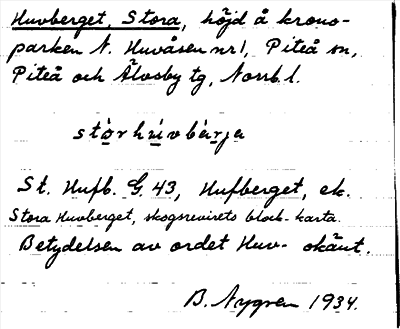 Huvberget, Stora, höjd å krono-
parken N. Huvåsen nr 1, Piteå sn,
Piteå och Älvsby tg, Norrb. l.
stọ̀rhụ́vbàrja
St. Hufb. G. 43, Hufberget, ek.
Stora Huvberget, skogsrevirets block-karta.
Betydelsen av ordet Huv- okänt.
B. Nygren 1934.